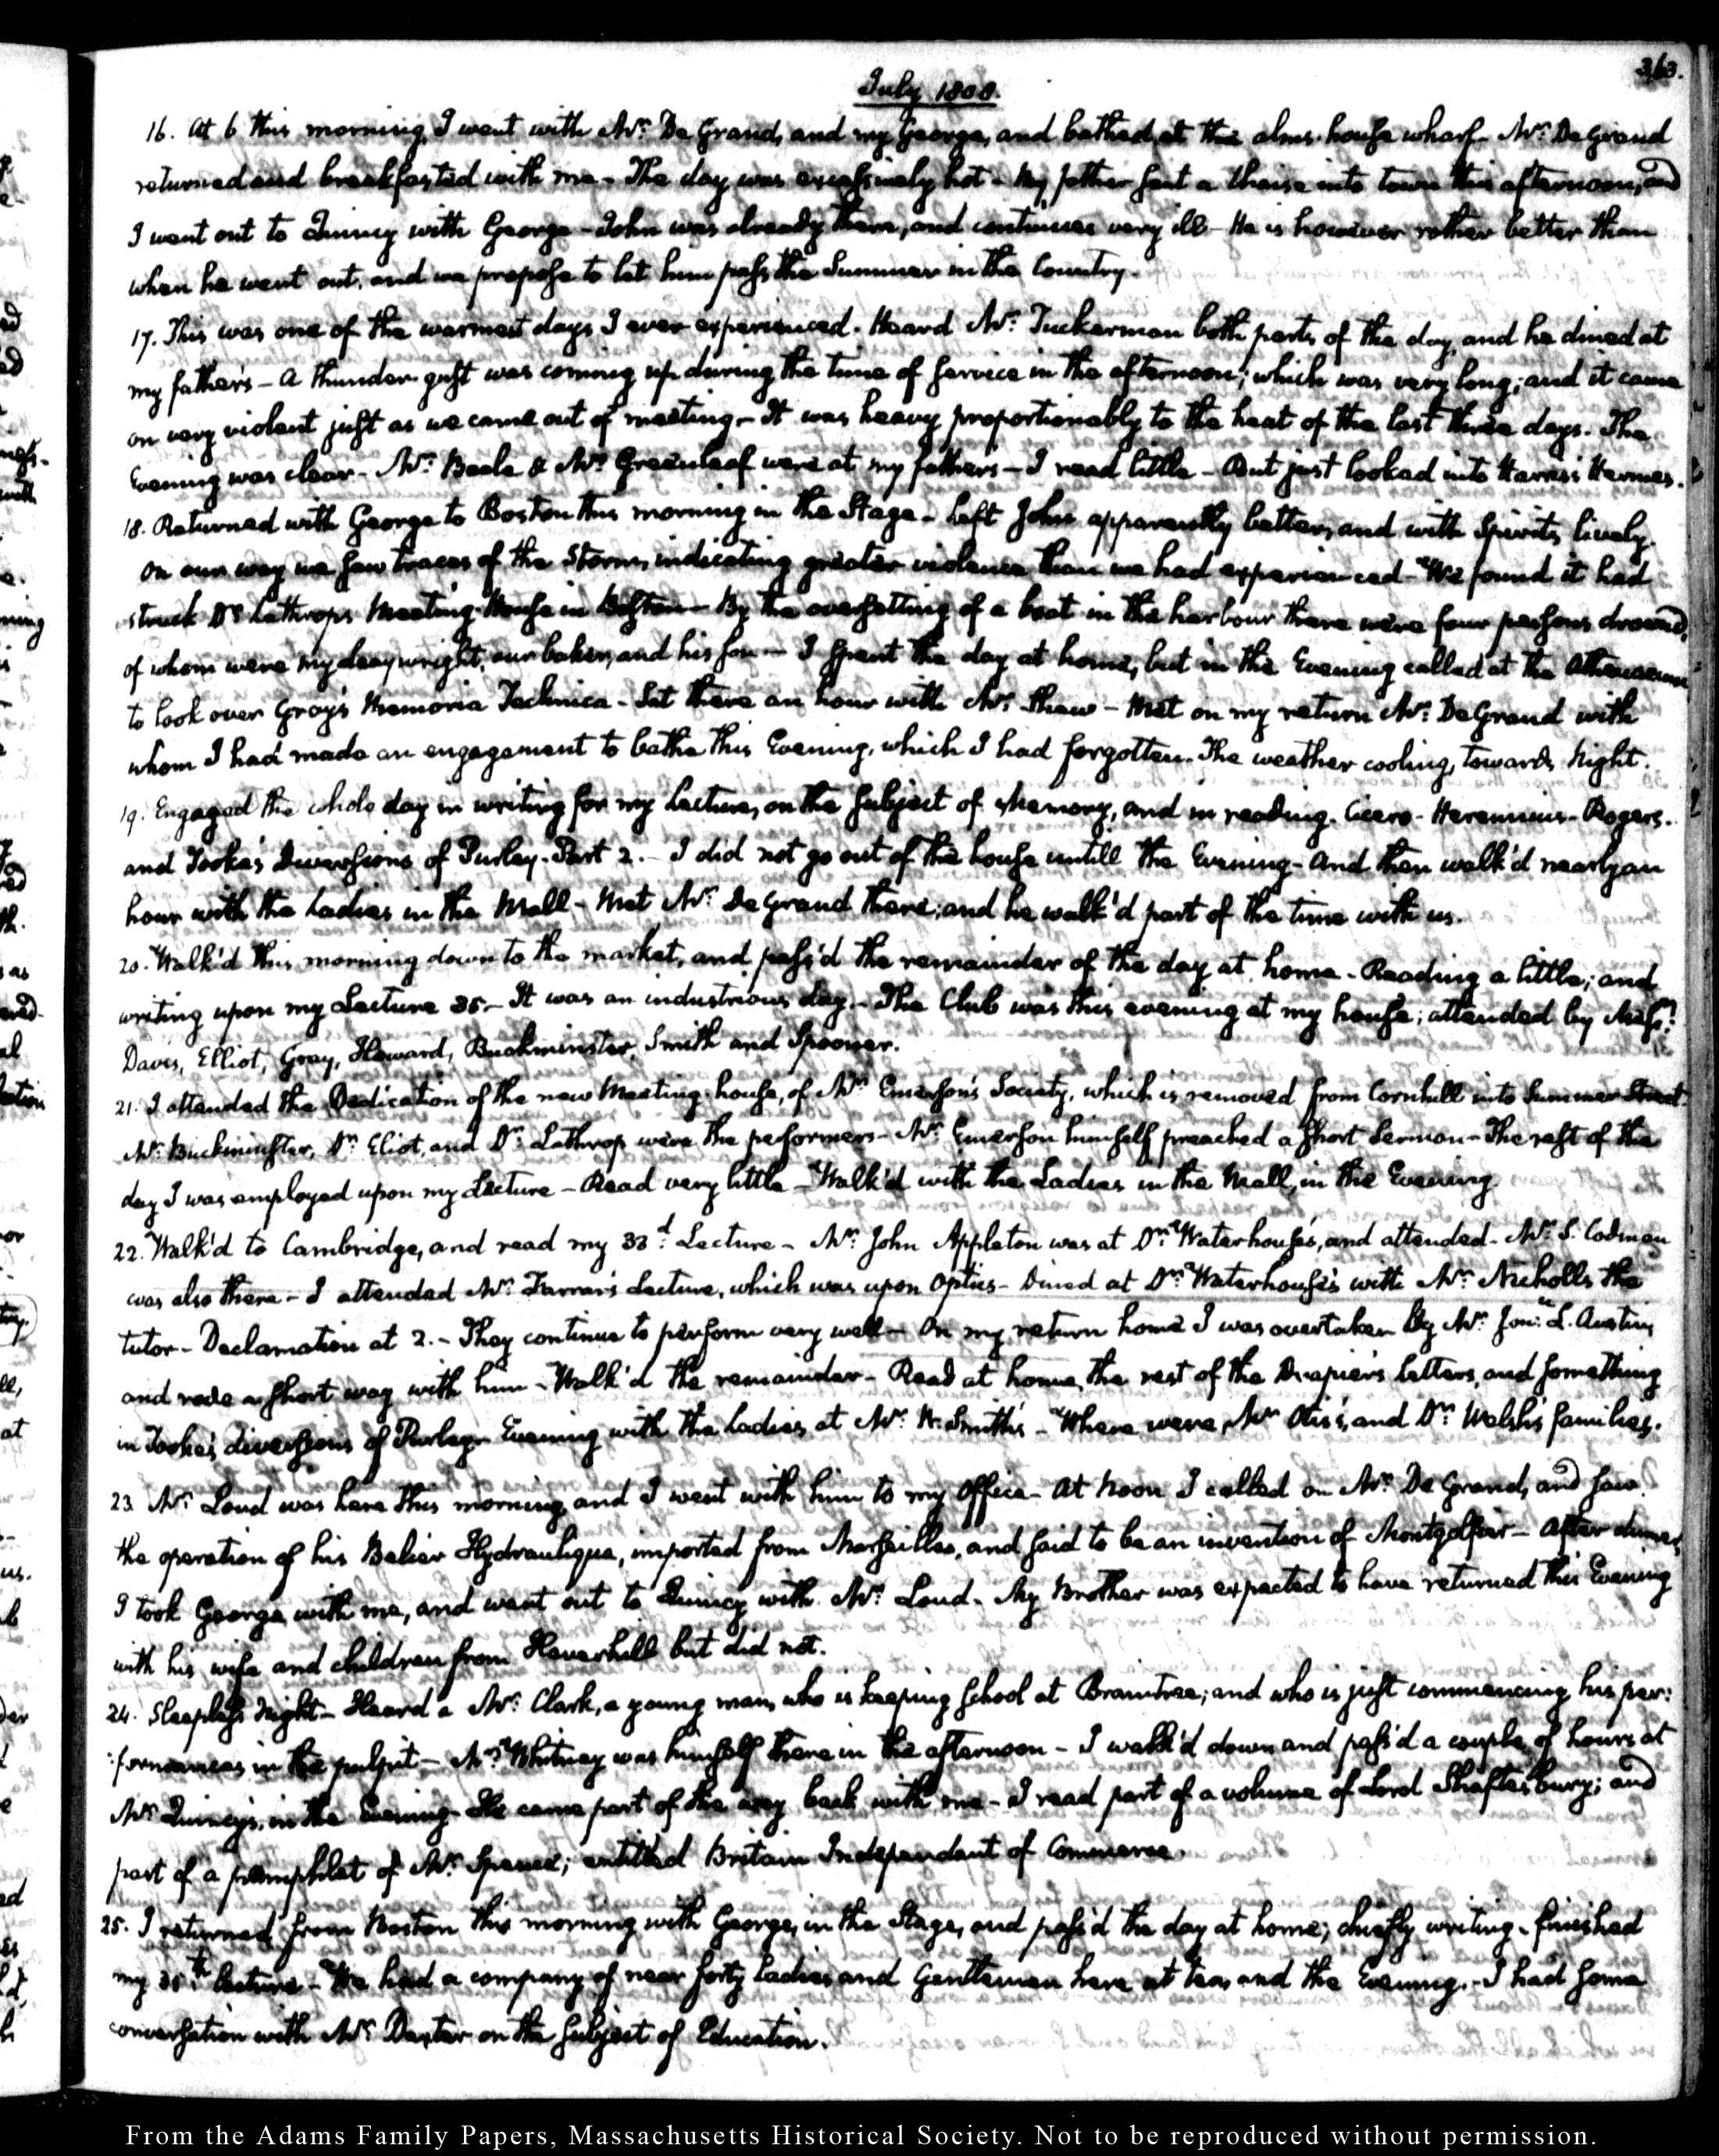 363.
July 1808.
16. At 6 this morning, I went with Mr: De Grand, and my George, and bathed at the alms-house wharf- Mr: De Grand
returned and breakfasted with me - The day was excessively hot - My father sent a Chaise into town this afternoon, and
I went out to Quincy with George - John was already there, and continues very ill - He is however rather better than
when he went out, and we propose to let him pass the Summer in the Country.
17. This was one of the warmest days I ever experienced. Heard Mr: Tuckerman both parts of the day, and he dined at
my father's - A thunder gust was coming up during the time of service in the afternoon; which was very long; and it came
on very violent just as we came out of meeting - It was heavy proportionably to the heat of the last three days. The
Evening was clear - Mr: Beale & Mr: Greenleaf were at my father's - I read little - But just looked into Harris's Hermes.
18. Returned with George to Boston this morning in the Stage - Left John apparently better, and with Spirits lively.
On our way we saw traces of the Storm, indicating greater violence than we had experienced - We found it had
struck Dr: Lathrop's Meeting-House in Boston - By the oversetting of a boat in the harbour there were four persons drown'd,
of whom were my wright, our baker, and his son - I spent the day at home, but in the Evening called at the Athenaeum
to look over Gray's Memoria Technica - Sat there an hour with Mr: Shaw - Met on my return Mr: De Grand with
whom I had made an engagement to bathe this Evening, which I had forgotten. The weather cooling, towards Night.
19. Engaged the whole day in writing for my Lecture, on the subject of Memory, and in reading. Cicero - Herennius - Rogers.
and Tooke's Diversions of Purley. Part 2. - I did not go out of the house untill the Evening - And then walk'd nearly an
hour with the Ladies in the Mall - Met Mr: De Grand there; and he walk'd part of the time with us.
20. Walk'd this morning down to the market, and pass'd the remainder of the day at home - Reading a little; and
writing upon my Lecture 35 - It was an industrious day. - The Club was this evening at my house; attended by Mess:rs
Davis, Elliot, Gray, Howard, Buckminster, Smith and Spooner.
21. I attended the Dedication of the new Meeting-house, of Mr: Emerson's Society, which is removed from Cornhill into Summer Street.
Mr: Buckminster, Dr: Eliot, and Dr: Lathrop were the performers - Mr: Emerson himself preached a short Sermon - The rest of the
day I was employed upon my Lecture - Read very little - Walk'd with the Ladies in the Mall, in the Evening.
22. Walk'd to Cambridge, and read my 33d: Lecture - Mr: John Appleton was at Dr: Waterhouse's, and attended - Mr: S. Codman
was also there - I attended Mr: Farrar's Lecture, which was upon Optics - Dined at Dr: Waterhouse's with Mr: Nicholls the
tutor - Declamation at 2. - They continue to perform very well - On my return home I was overtaken by Mr: Jon:n L. Austin,
and rode a short way with him - Walk'd the remainder - Read at home, the rest of the Drapier's letters, and something
in Tooke's diversions of Purley - Evening with the Ladies, at Mr: W. Smith's - Where were, Mr: Otis's, and Dr: Welsh's families.
23. Mr: Loud was here this morning, and I went with him to my Office - At Noon I called on Mr: De Grand, and saw
the operation of his Belier Hydraulique, imported from Marseilles, and said to be an invention of Montgolfier - After dinner,
I took George with me, and went out to Quincy with Mr: Loud - My Brother was expected to have returned this Evening
with his wife and children from Haverhill but did not.
24. Sleepless Night - Heard a Mr: Clark, a young man, who is keeping school at Braintree; and who is just commencing his per:
:formances in the pulpit - Mr: Whitney was himself there in the afternoon - I walk'd down and pass'd a couple of hours at
Mr: Quincy's, in the Evening - He came part of the way back with me - I read part of a volume of Lord Shaftesbury; and
part of a pamphlet of Mr: Spence; entitled Britain Independent of Commerce.
25. I returned from Boston this morning with George, in the Stage, and pass'd the day at home; chiefly writing - finished
my 35th: lecture - We had a company of near forty Ladies and Gentlemen here at tea, and the Evening. - I had some
conversation with Mr: Dexter on the subject of Education.
From the Adams Family Papers, Massachusetts Historical Society. Not to be reproduced without permission.